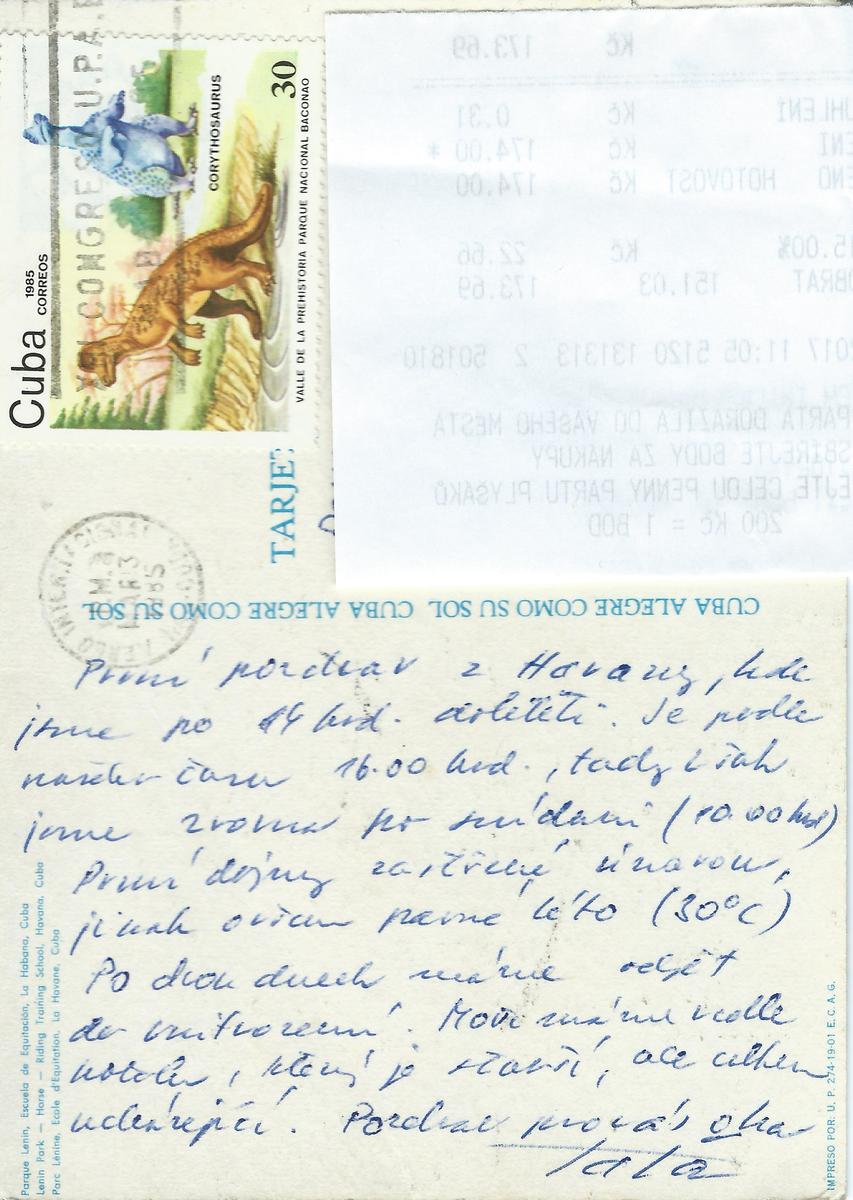 Cuba
1985
CORREOS
CORYTHOSAURUS
30
VALLE DE LA PREHISTORIA PARQUE NACIONAL BACONAO
XVI CONGRESO U.P.A.E
TARJE
Kč 173.69
Kč 0.31
Kč 174.00 *
HOTOVOST Kč 174.00
15.00% Kč 22.66
OBRAT 151.03 173.69
2017 11:05 5120 131313 2 501810
PARTA DORAZILA DO VAŠEHO MĚSTA
SBÍREJTE BODY ZA NÁKUPY
CELOU PENNY PARTU PLYŠÁKŮ
200 Kč = 1 BOD
CUBA ALEGRE COMO SU SOL CUBA ALEGRE COMO SU SOL
První pozdrav z Havany, kde
jsme po 14 hod. doletěli. Je podle
našeho času 16.00 hod., tady však
jsme zrovna po snídani (10.00 hod)
První dojmy zastřené únavou,
jinak ovšem parné léto (30°C)
Po dvou dnech máme odjet
do vnitrozemí. Moře máme vedle
hotelu, který je starší, ale celkem
Pozdrav pro vás oba
Táta
Parque Lenin, Escuela de Equitación, La Habana, Cuba
Lenin Park — Horse — Riding Training School, Havana, Cuba
Parc Lénine, Ecole d'Equitation, La Havane, Cuba
IMPRESO POR: U. P. 274-19-01 E. C. A. G.